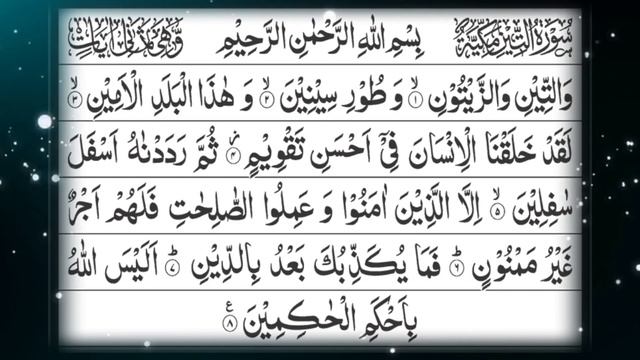 سُوْرَةُ التِّيْنِ مَكِّيَّةٌ بِسْمِ اللّٰهِ الرَّحْمٰنِ الرَّحِيْمِ وَّهِیَ ثَمَانِیْ اٰيَاتٍ
وَالتِّيْنِ وَالزَّيْتُوْنِ ۙ﴿۱﴾ وَ طُوْرِ سِيْنِيْنَ ۙ﴿۲﴾ وَ هٰذَا الْبَلَدِ الْاَمِيْنِ ۙ﴿۳﴾
لَقَدْ خَلَقْنَا الْاِنْسَانَ فِیْۤ اَحْسَنِ تَقْوِيْمٍ ؗ﴿۴﴾ ثُمَّ رَدَدْنٰهُ اَسْفَلَ
سٰفِلِيْنَ ۙ﴿۵﴾ اِلَّا الَّذِيْنَ اٰمَنُوْا وَ عَمِلُوا الصّٰلِحٰتِ فَلَهُمْ اَجْرٌ
غَيْرُ مَمْنُوْنٍ ؕ﴿۶﴾ فَمَا يُكَذِّبُكَ بَعْدُ بِالدِّيْنِ ؕ﴿۷﴾ اَلَيْسَ اللّٰهُ
بِاَحْكَمِ الْحٰكِمِيْنَ ﴿۸﴾ ع